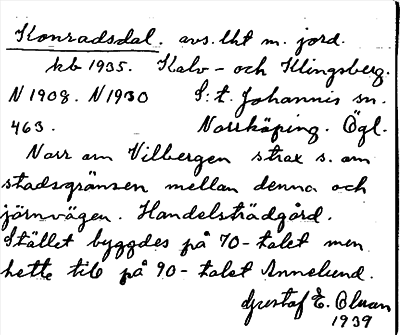 Konradsdal. avs. lht m. jord.
kb 1935. Kalv- och Klingsberg.
N 1908. N 1930 S:t. Johannis sn.
463. Norrköping. Ögl.
Norr om Vilbergen strax s. om
stadsgränsen mellan denna och
järnvägen. Handelsträdgård.
Stället byggdes på 70-talet men
hette til på 90-talet Annelund.
Gustaf E. Olsson
1939